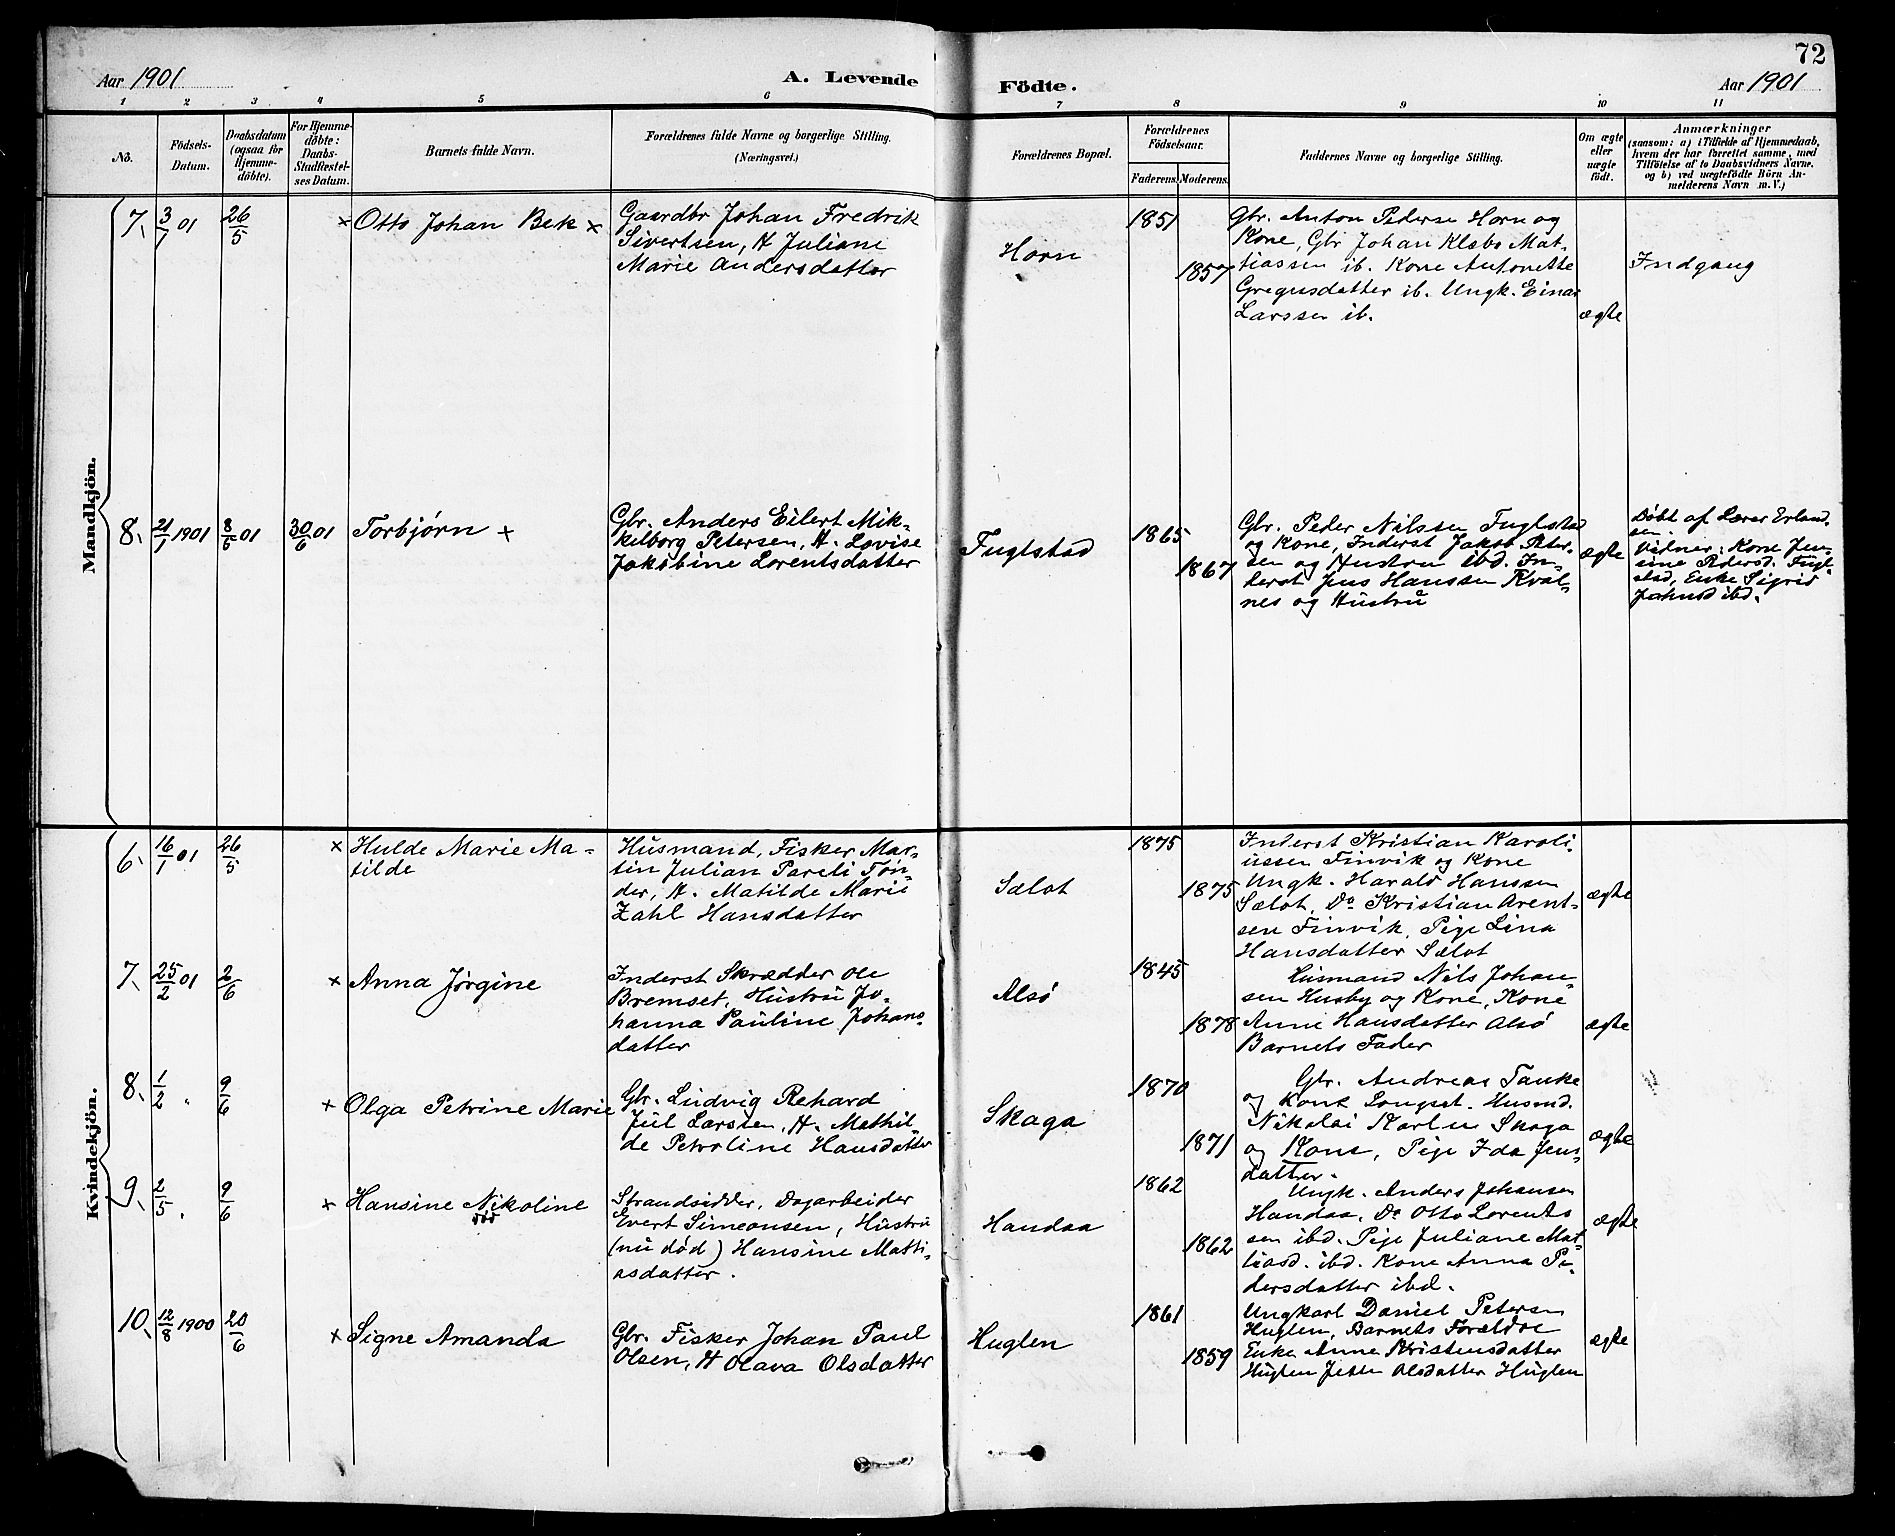 72
Aar 1901
A. Levende Födte.
Aar 1901
1 2 3 4 5 6 7 8 9 10 11
No.
Födsels-
Datum.
Daabsdatum
(ogsaa for
Hjemme-
döbte).
For Hjemme-
döbte:
Daabs-
Stadfæstel-
ses Datum.
Barnets fulde Navn.
Forældrenes fulde Navne og borgerlige Stilling.
(Næringsvei.)
Forældrenes Bopæl.
Forældrenes
Födselsaar.
Faderens. Moderens.
Faddernes Navne og borgerlige Stilling.
Om ægte
eller
uægte
födt.
Anmærkninger
(saasom: a) i Tilfælde af Hjemmedaab,
hvem der har forrettet samme, med
Tilföielse af to Daabsvidners Navne,
og b) ved uægtefödte Börn An-
melderens Navn m. V.)
Mandkjön.
7, 3/1 01 26/5
× Otto Johan Bek ×
Gaardbr Johan Fredrik
Sivertsen, H Juliane
Marie Andersdatter
Horn
1851
1857
Gbr. Anton Peders Horn og
Kone, Gbr Johan Klæbo Mat-
tiassen ib. Kone Antonette
Gregusdatter ib. Ungk. Einar
Larssen ib.
ægte
Indgang
8, 21/1 1901 8/6 01 30/6 01
Torbjørn ×
Gbr. Anders Eilert Mik-
kelborg Petersen, H. Lovise
Jakobine Lorentsdatter
Fuglstad
1865
1867
Gbr. Peder Nilssen Fuglstad
og Kone, Inderst Jakob Peter-
sen og Hustru ibd. In-
derst Jens Hanssen Kval-
nes og Hustru
ægte
Døbt af Lærer Erland-
sen.
Vidner: Kone Jen-
sine Pedersd. Fugl-
stad, Enke Sigrid
Johnsd ibd.
Kvindekjön.
6, 16/1 01 26/5
× Hulde Marie Ma-
tilde
Husmand, Fisker Mar-
tin Julian Pareli Tøn-
der, H. Matilde Marie
Zahl Hansdatter
Sælot
1875
1875
Inderst Kristian Karoli-
ussen Finvik og Kone
Ungk. Harald Hanssen
Sælot, Do Kristian Arent-
sen Finvik, Pige Lina
Hansdatter Sælot
ægte
7, 25/2 01 2/6
× Anna Jørgine
Inderst Skrædder Ole
Bremset, Hustru Jo-
hanna Pauline Johans-
datter
Alsø
1845
1878
Husmand Nils Johan-
sen Husby og Kone, Kone
Anne Hansdatter Alsø
Barnets Fader
ægte
8, 1/2 " 9/6
× Olga Petrine Marie
Gbr. Ludvig Rehard
Jul Larssen, H. Mathil-
de Petroline Hansdatter
Skaga
1870
1871
Gbr. Andreas Tanke
og Kone Longset. Husmd.
Nikolai Karlsen Skaga
og Kone, Pige Ida Jens-
datter.
ægte
9, 2/5 " 9/6
× Hansine Nikoline
død
Strandsidder, Dagarbeider
Evert Simeonsen, Hustru
(nu død) Hansine Matti-
asdatter.
Handaa
1862
1862
Ungk. Anders Johansen
Handaa, Do Otto Lorents
sen ibd. Pige Juliane Mat-
tiasd. ibd. Kone Anna Pe-
dersdatter ibd.
ægte
10, 12/8 1900 20/6
× Signe Amanda
Gbr. Fisker Johan Paul
Olsen, H Olava Olsdatter
Huglen
1861
1859
Ungkarl Daniel Petersen
Huglen, Barnets Forældre
Enke Anne Kristensdatter
Huglen Jette Olsdatter Huglen
ægte